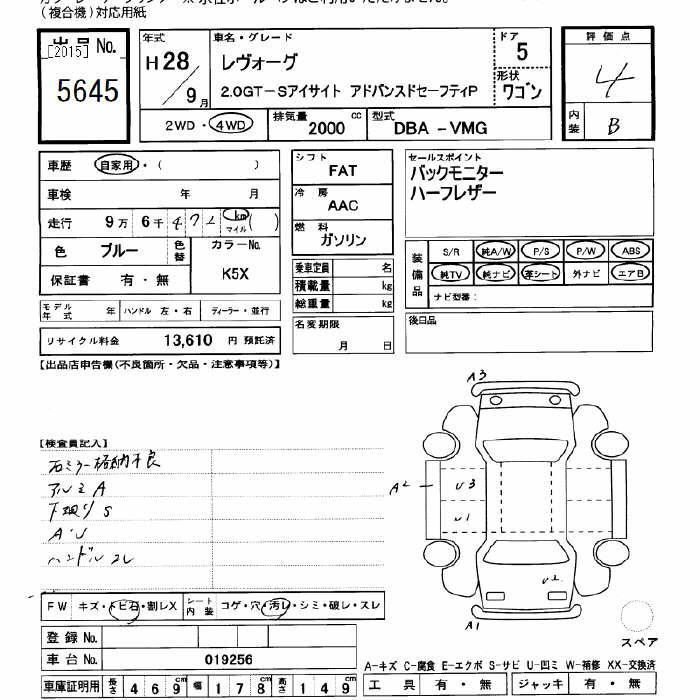 (複合機)対応用紙
出品 No.
[2015]
5645
年式
H 28 / 9 月
車名・グレード
レヴォーグ
2.0GT-Sアイサイト アドバンスドセーフティP
ドア
5
形状
ワゴン
2WD・4WD
排気量 2000 cc
型式 DBA -VMG
評価点
4
内装 B
車歴 自家用・( )
車検 年 月
走行 9万 6千 4 7 1 km マイル ( )
色 ブルー 色替 カラーNo.
保証書 有・無 K5X
モデル年式 年 ハンドル 左・右 ディーラー・並行
リサイクル料金 13,610 円 預託済
シフト
FAT
冷房
AAC
燃料
ガソリン
乗車定員 名
積載量 kg
総重量 kg
名変期限
月 日
セールスポイント
バックモニター
ハーフレザー
装備品
S/R 純A/W P/S P/W ABS
純TV 純ナビ 革シート 外ナビ エアB
ナビ型番:
後日品
【出品店申告欄(不良箇所・欠品・注意事項等)】
【検査員記入】
右ミラー格納不良
アルミ A
下廻り S
A・U
ハンドル スレ
A3
A2
U3
U1
A1
FW キズ・トビ石・割レX
シート内装 コゲ・穴・汚レ・シミ・破レ・スレ
登録 No.
車台 No. 019256
車庫証明用 長さ 4 6 9 cm 幅 1 7 8 cm 高さ 1 4 9 cm
スペア
A-キズ C-腐食 E-エクボ S-サビ U-凹ミ W-補修 XX-交換済
工具 有・無 ジャッキ 有・無